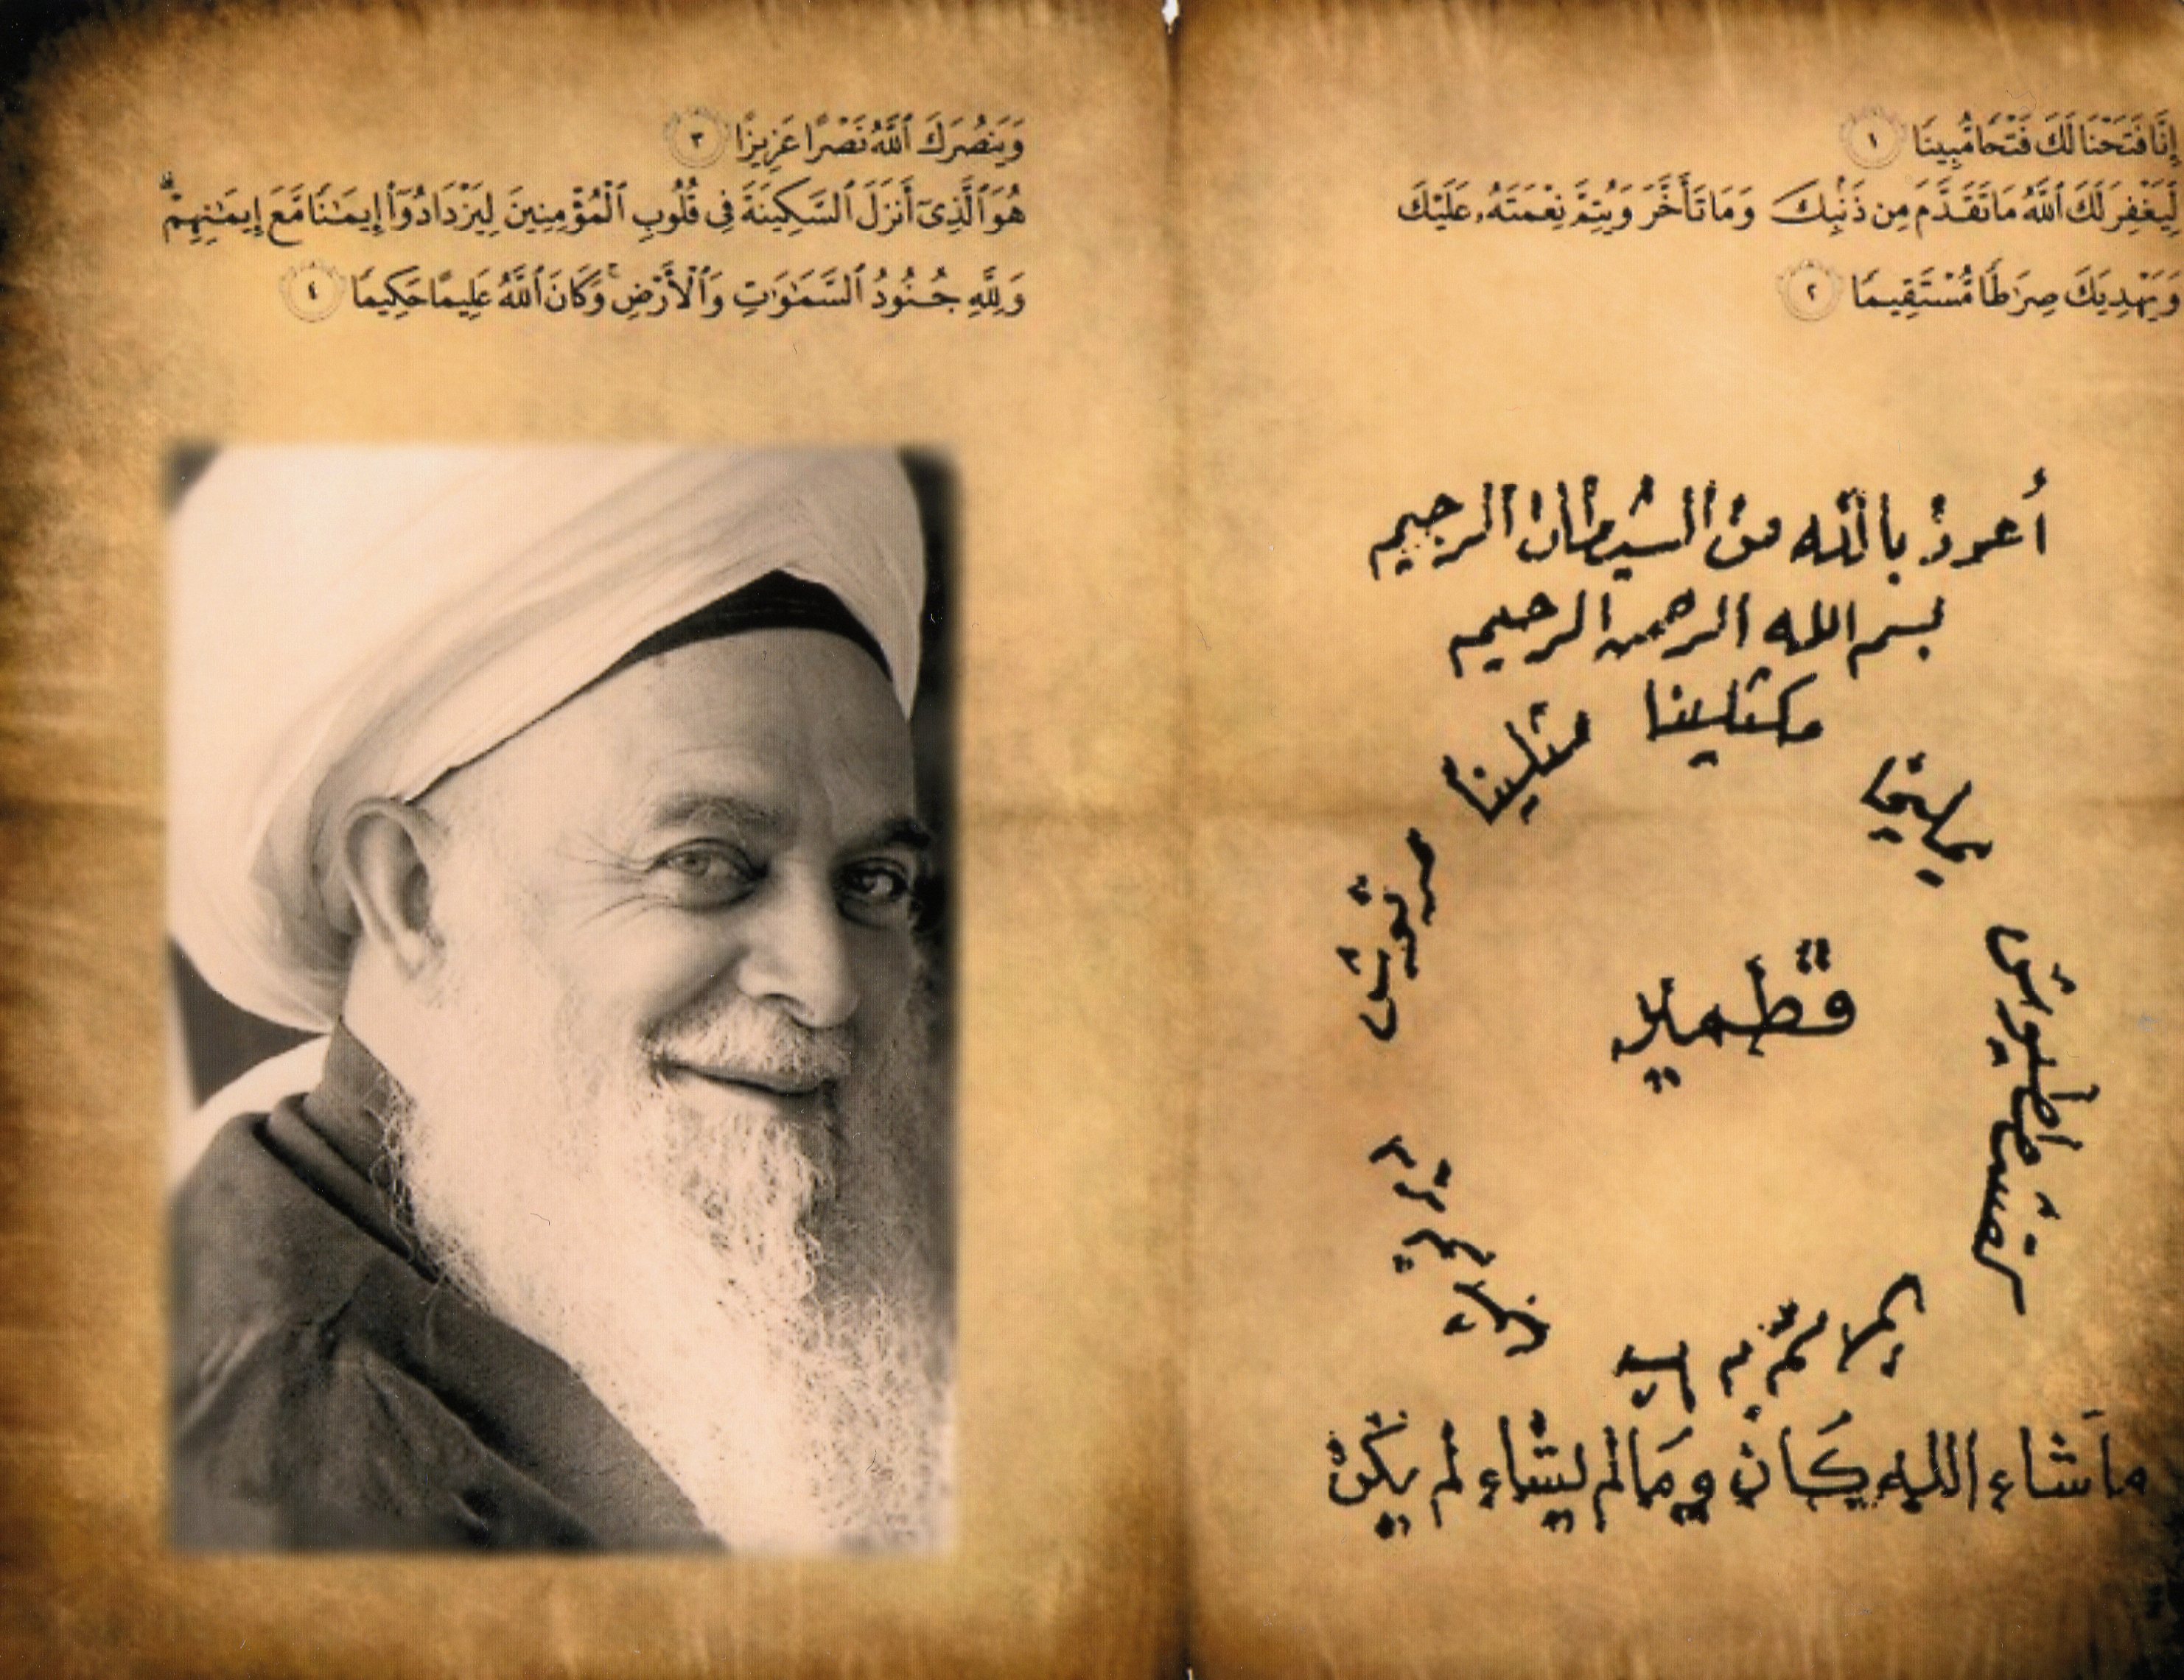 إِنَّا فَتَحْنَا لَكَ فَتْحًا مُّبِينًا ١
لِّيَغْفِرَ لَكَ ٱللَّهُ مَا تَقَدَّمَ مِن ذَنۢبِكَ وَمَا تَأَخَّرَ وَيُتِمَّ نِعْمَتَهُۥ عَلَيْكَ
وَيَهْدِيَكَ صِرَٰطًا مُّسْتَقِيمًا ٢
أعوذ بالله من الشيطان الرجيم
بسم الله الرحمن الرحيم
مكثلينا
مثلينا
يمليخا
مرنوش
قطمير
ما شاء الله كان وما لم يشاء لم يكن
وَيَنصُرَكَ ٱللَّهُ نَصْرًا عَزِيزًا ٣
هُوَ ٱلَّذِىٓ أَنزَلَ ٱلسَّكِينَةَ فِى قُلُوبِ ٱلْمُؤْمِنِينَ لِيَزْدَادُوٓا۟ إِيمَٰنًا مَّعَ إِيمَٰنِهِمْ ۗ
وَلِلَّهِ جُنُودُ ٱلسَّمَٰوَٰتِ وَٱلْأَرْضِ ۚ وَكَانَ ٱللَّهُ عَلِيمًا حَكِيمًا ٤